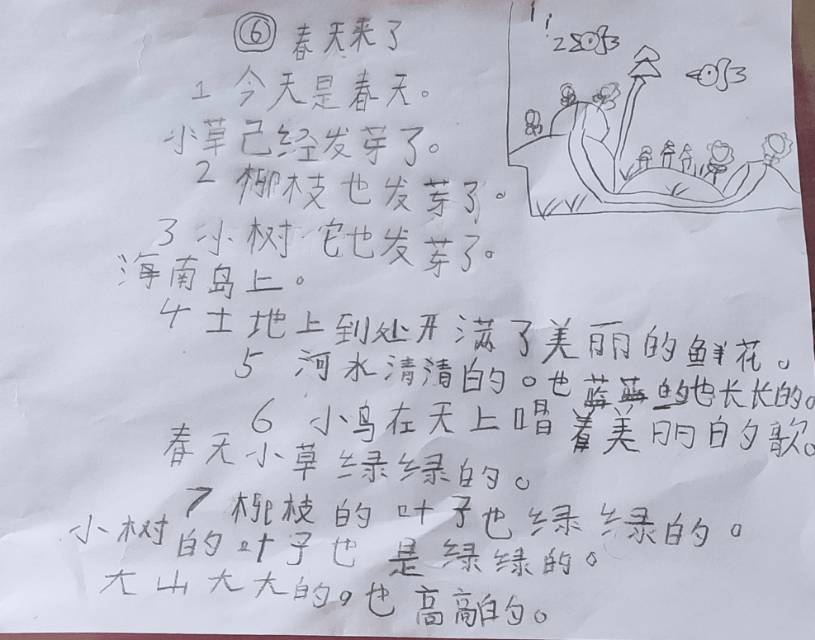 ⑥ 春天来了
1 今天是春天。
小草已经发芽了。
2 柳枝也发芽了。
3 小树它也发芽了。
海南岛上。
4 土地上到处开满了美丽的鲜花。
5 河水清清的。也蓝蓝的也长长的。
6 小鸟在天上唱着美丽的歌。
春天小草绿绿的。
7 柳枝的叶子也绿绿的。
小树的叶子也是绿绿的。
大山大大的。也高高的。